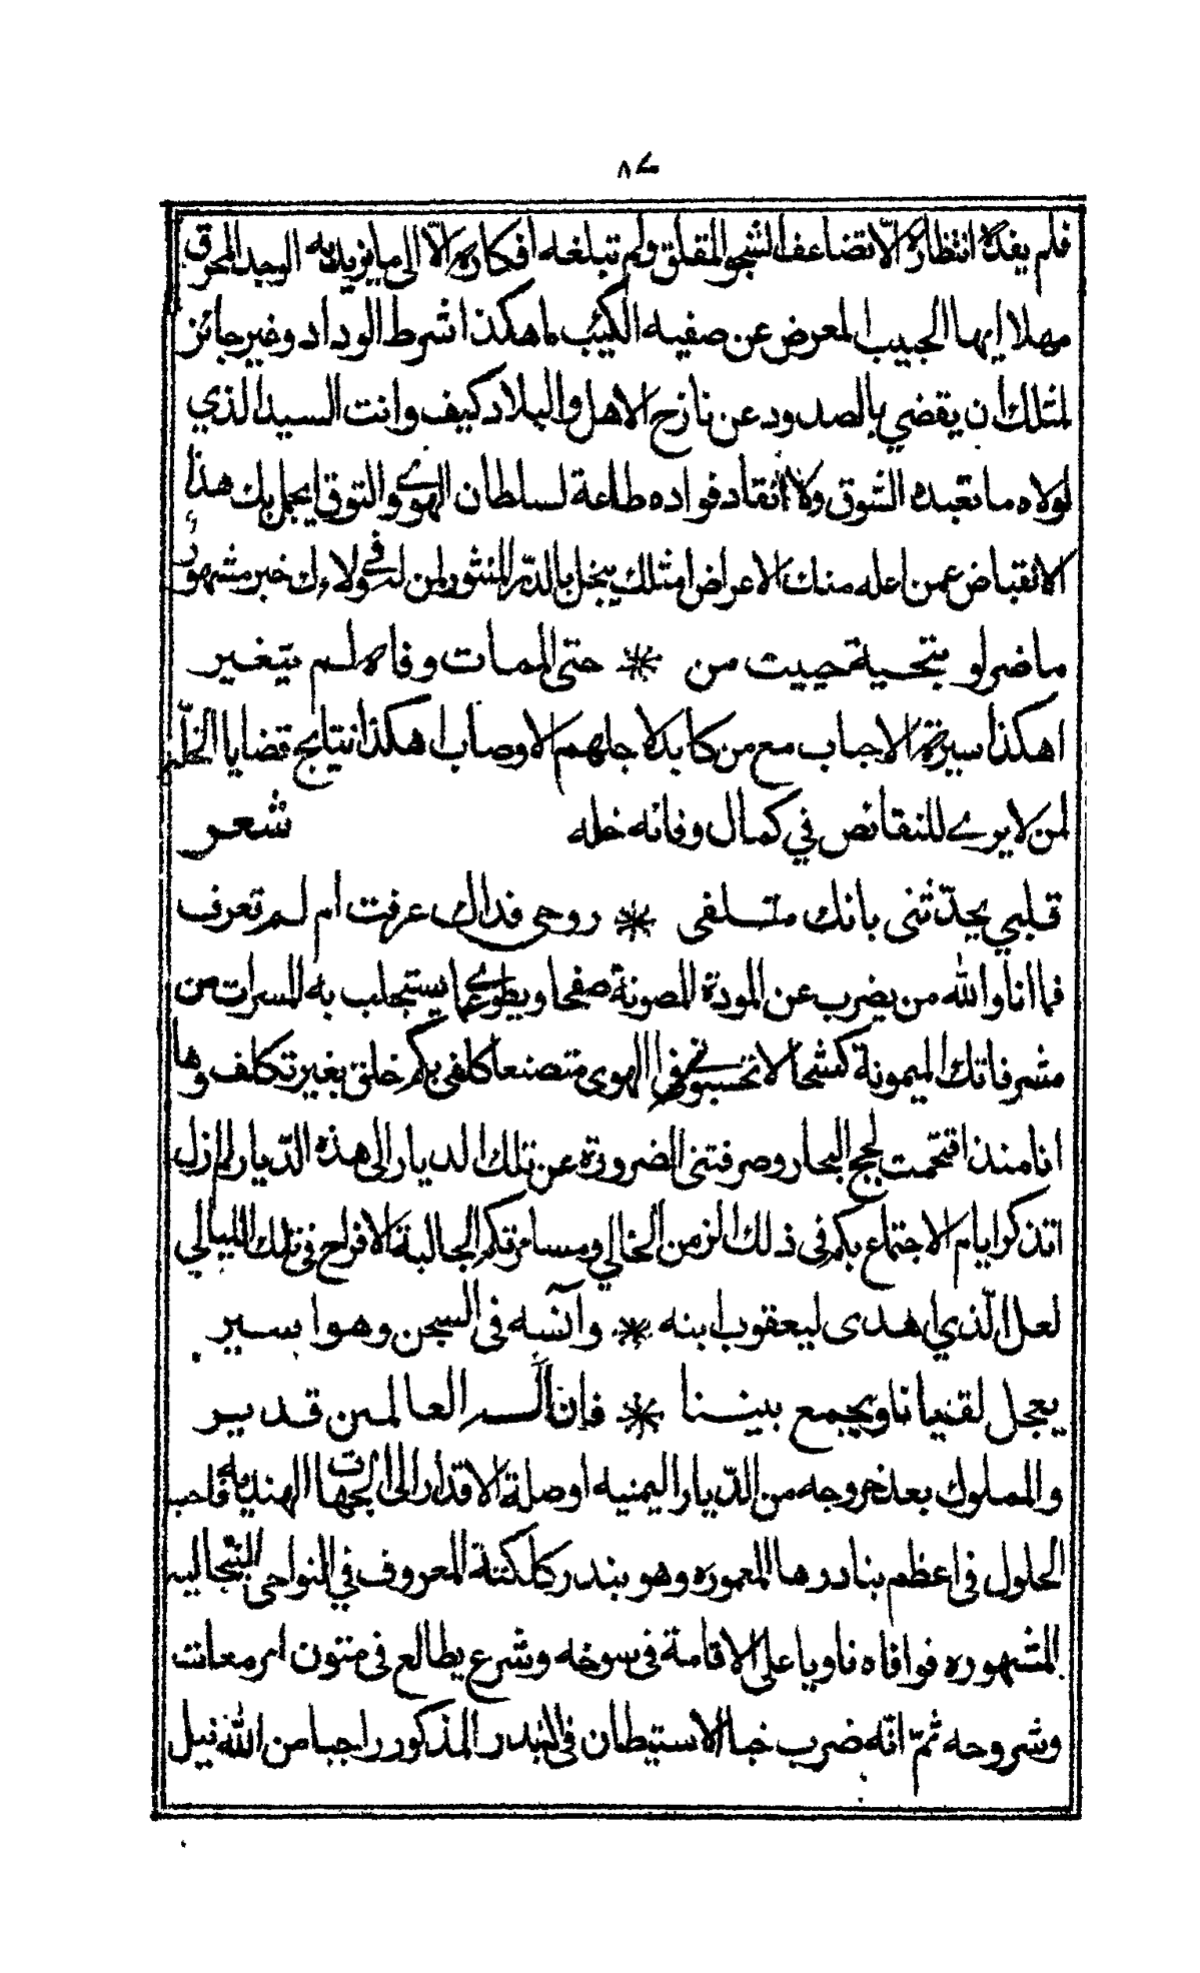 ٨٢
فلم يفده انتظاره الّا تضاعف الشجو المقلق ولم تبلغه افكاره الّا الى ما يزيد به الوجد المحرق
مهلا ايها الحبيب المعرض عن صفيه الكئيب اهكذا شرط الوداد وغير جائز
لمثلك ان يقضي بالصدود عن نازح الاهل والبلاد كيف وانت السيد الذي
لولاه ما تعبده الشوق ولا انقاد فواده طاعة لسلطان الهوى والتوق ايجمل بك هذا
الانقباض عمن اعله منك الاعراض امثلك يبخل بالدّر المنثور لمن له فى ولاءك خبر مشهور
ما ضر لو بتحية حييت من * حتى الممات وفاه لم يتغير
اهكذا سيرة الاحباب مع من كابد لاجلهم الاوصاب اهكذا نتايج قضايا الخلّه
لمن لا يرى للنقائص في كمال وفائه خله شعر
قلبي يحدّثنى بانك متلفى * روحى فداك عرفت ام لم تعرف
فما انا والله من يضرب عن المودة المصونة صفحا ويطوى عما يستجلب به المسرات من
مشرفاتك الميمونة كشحا لا تحسبونى فى الهوى متصنعا كلفى بكم خلق بغير تكلف وها
انا منذ اقتحمت لجج البحار وصرفتنى الضرورة عن تلك الديار الى هذه الدّيار لم ازل
اتذكر ايام الاجتماع بكم فى ذلك الزمن الخالي ومسامرتكم الجالبة الافراح فى تلك الليالي
لعل الّذي اهدى ليعقوب ابنه * وآنسه فى السجن وهو اسير
يعجل لقيانا ويجمع بيننا * فإن اله العالمين قدير
والمملوك بعد خروجه من الدّيار اليمنيه اوصلة الاقدار الى الجهات الهنديه فاحب
الحلول فى اعظم بنادرها المعموره وهو بندر كلكتة المعروف في النواحى البنجاليه
المشهوره فوافاه ناويا على الاقامة فى سوحه وشرع يطالع فى متون امر معانت
وشروحه ثمّ انّه ضرب خبا الاستيطان فى البندر المذكور راجيا من الله نيل